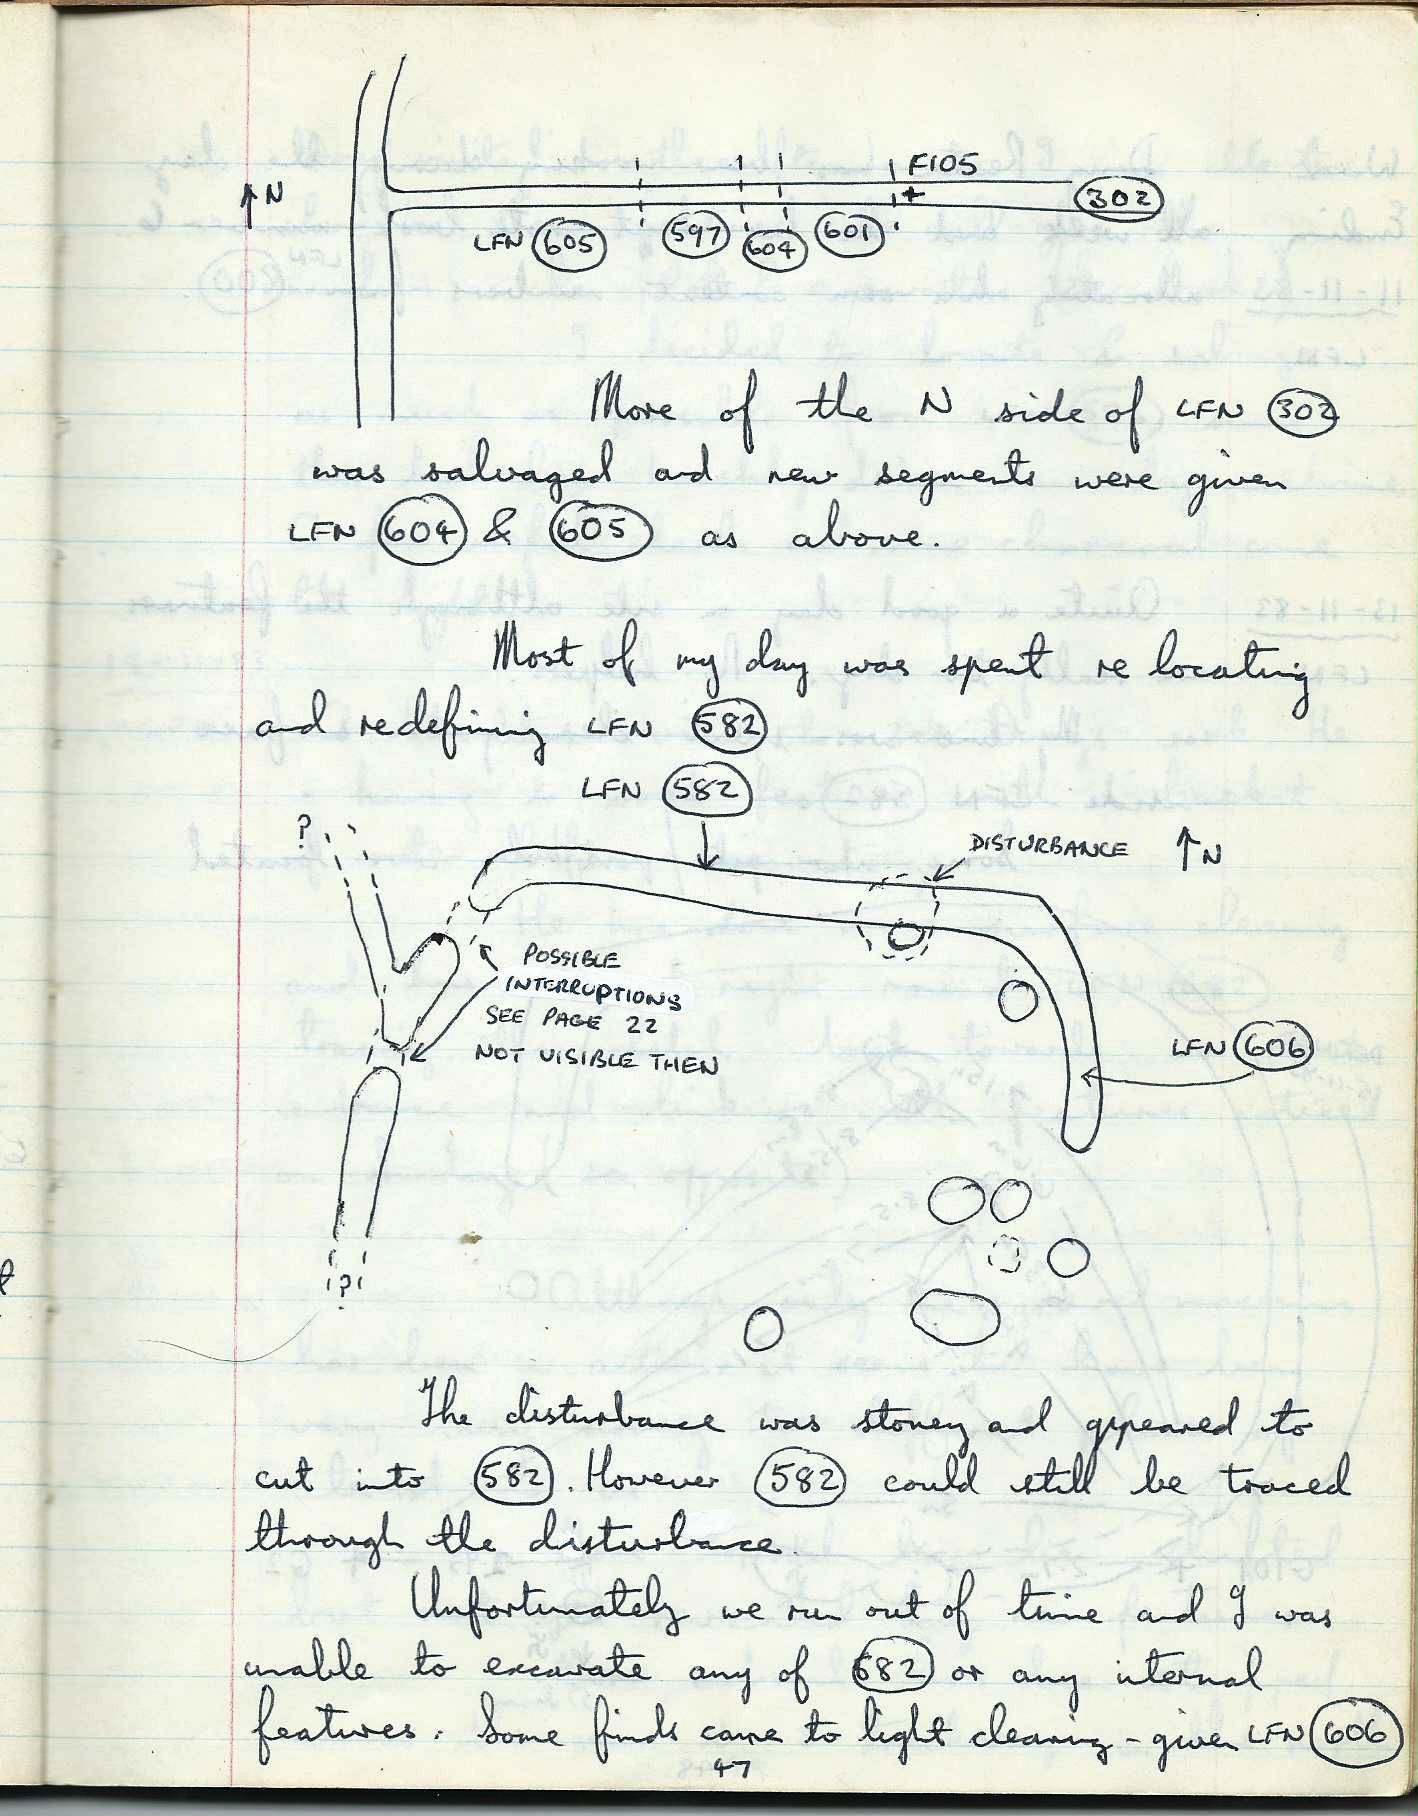 F105
↑N
302
LFN 605 597 604 601
More of the N side of LFN 302
was salvaged and new segments were given
LFN 604 & 605 as above.
Most of my day was spent re locating
and redefining LFN 582
LFN 582
?
DISTURBANCE ↑N
POSSIBLE
INTERRUPTIONS
SEE PAGE 22
NOT VISIBLE THEN
LFN 606
?
The disturbance was stoney and appeared to
cut into 582. However 582 could still be traced
through the disturbance.
Unfortunately we run out of time and I was
unable to excavate any of 582 or any internal
features. Some finds came to light cleaning - given LFN 606
47